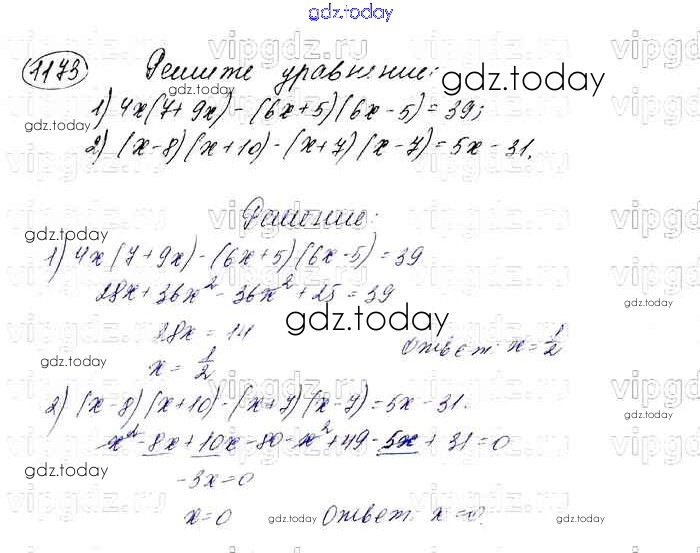 gdz.today
1173 Решите уравнение:
gdz.today
1) 4x(7+9x) - (6x+5)(6x-5) = 39;
gdz.today
2) (x-8)(x+10) - (x+7)(x-7) = 5x - 31.
Решение:
gdz.today
1) 4x(7+9x) - (6x+5)(6x-5) = 39
28x + 36x² - 36x² + 25 = 39
gdz.today
gdz.today
28x = 14
x = 1/2
Ответ: x = 1/2
gdz.today
2) (x-8)(x+10) - (x+7)(x-7) = 5x - 31.
gdz.today
x² - 8x + 10x - 80 - x² + 49 - 5x + 31 = 0
gdz.today
-3x = 0
x = 0
Ответ: x = 0.
gdz.today
gdz.today